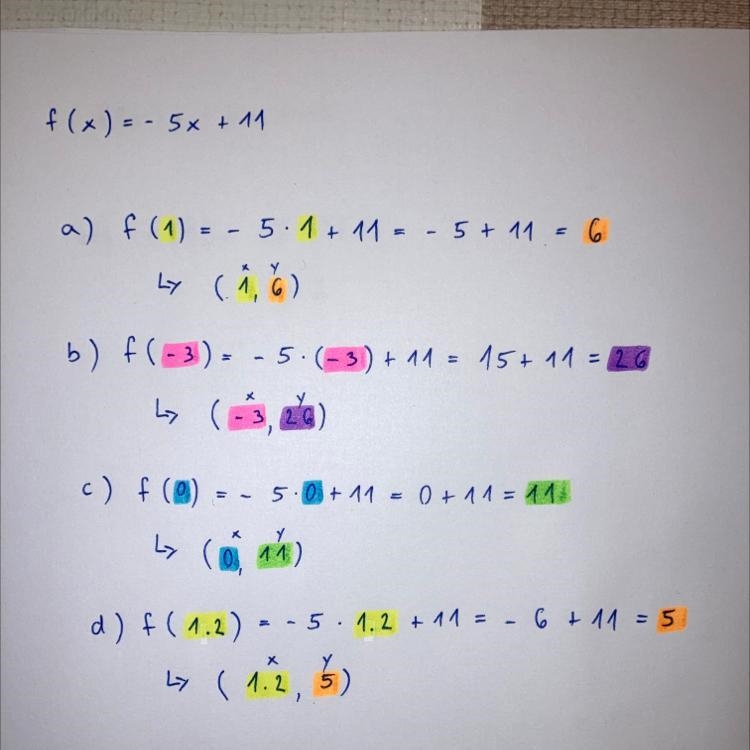 f(x) = - 5x + 11
a) f(1) = - 5 · 1 + 11 = - 5 + 11 = 6
x y
↳ (1, 6)
b) f(-3) = - 5 · (-3) + 11 = 15 + 11 = 26
x y
↳ (-3, 26)
c) f(0) = - 5 · 0 + 11 = 0 + 11 = 11
x y
↳ (0, 11)
d) f(1.2) = - 5 · 1.2 + 11 = - 6 + 11 = 5
x y
↳ (1.2, 5)